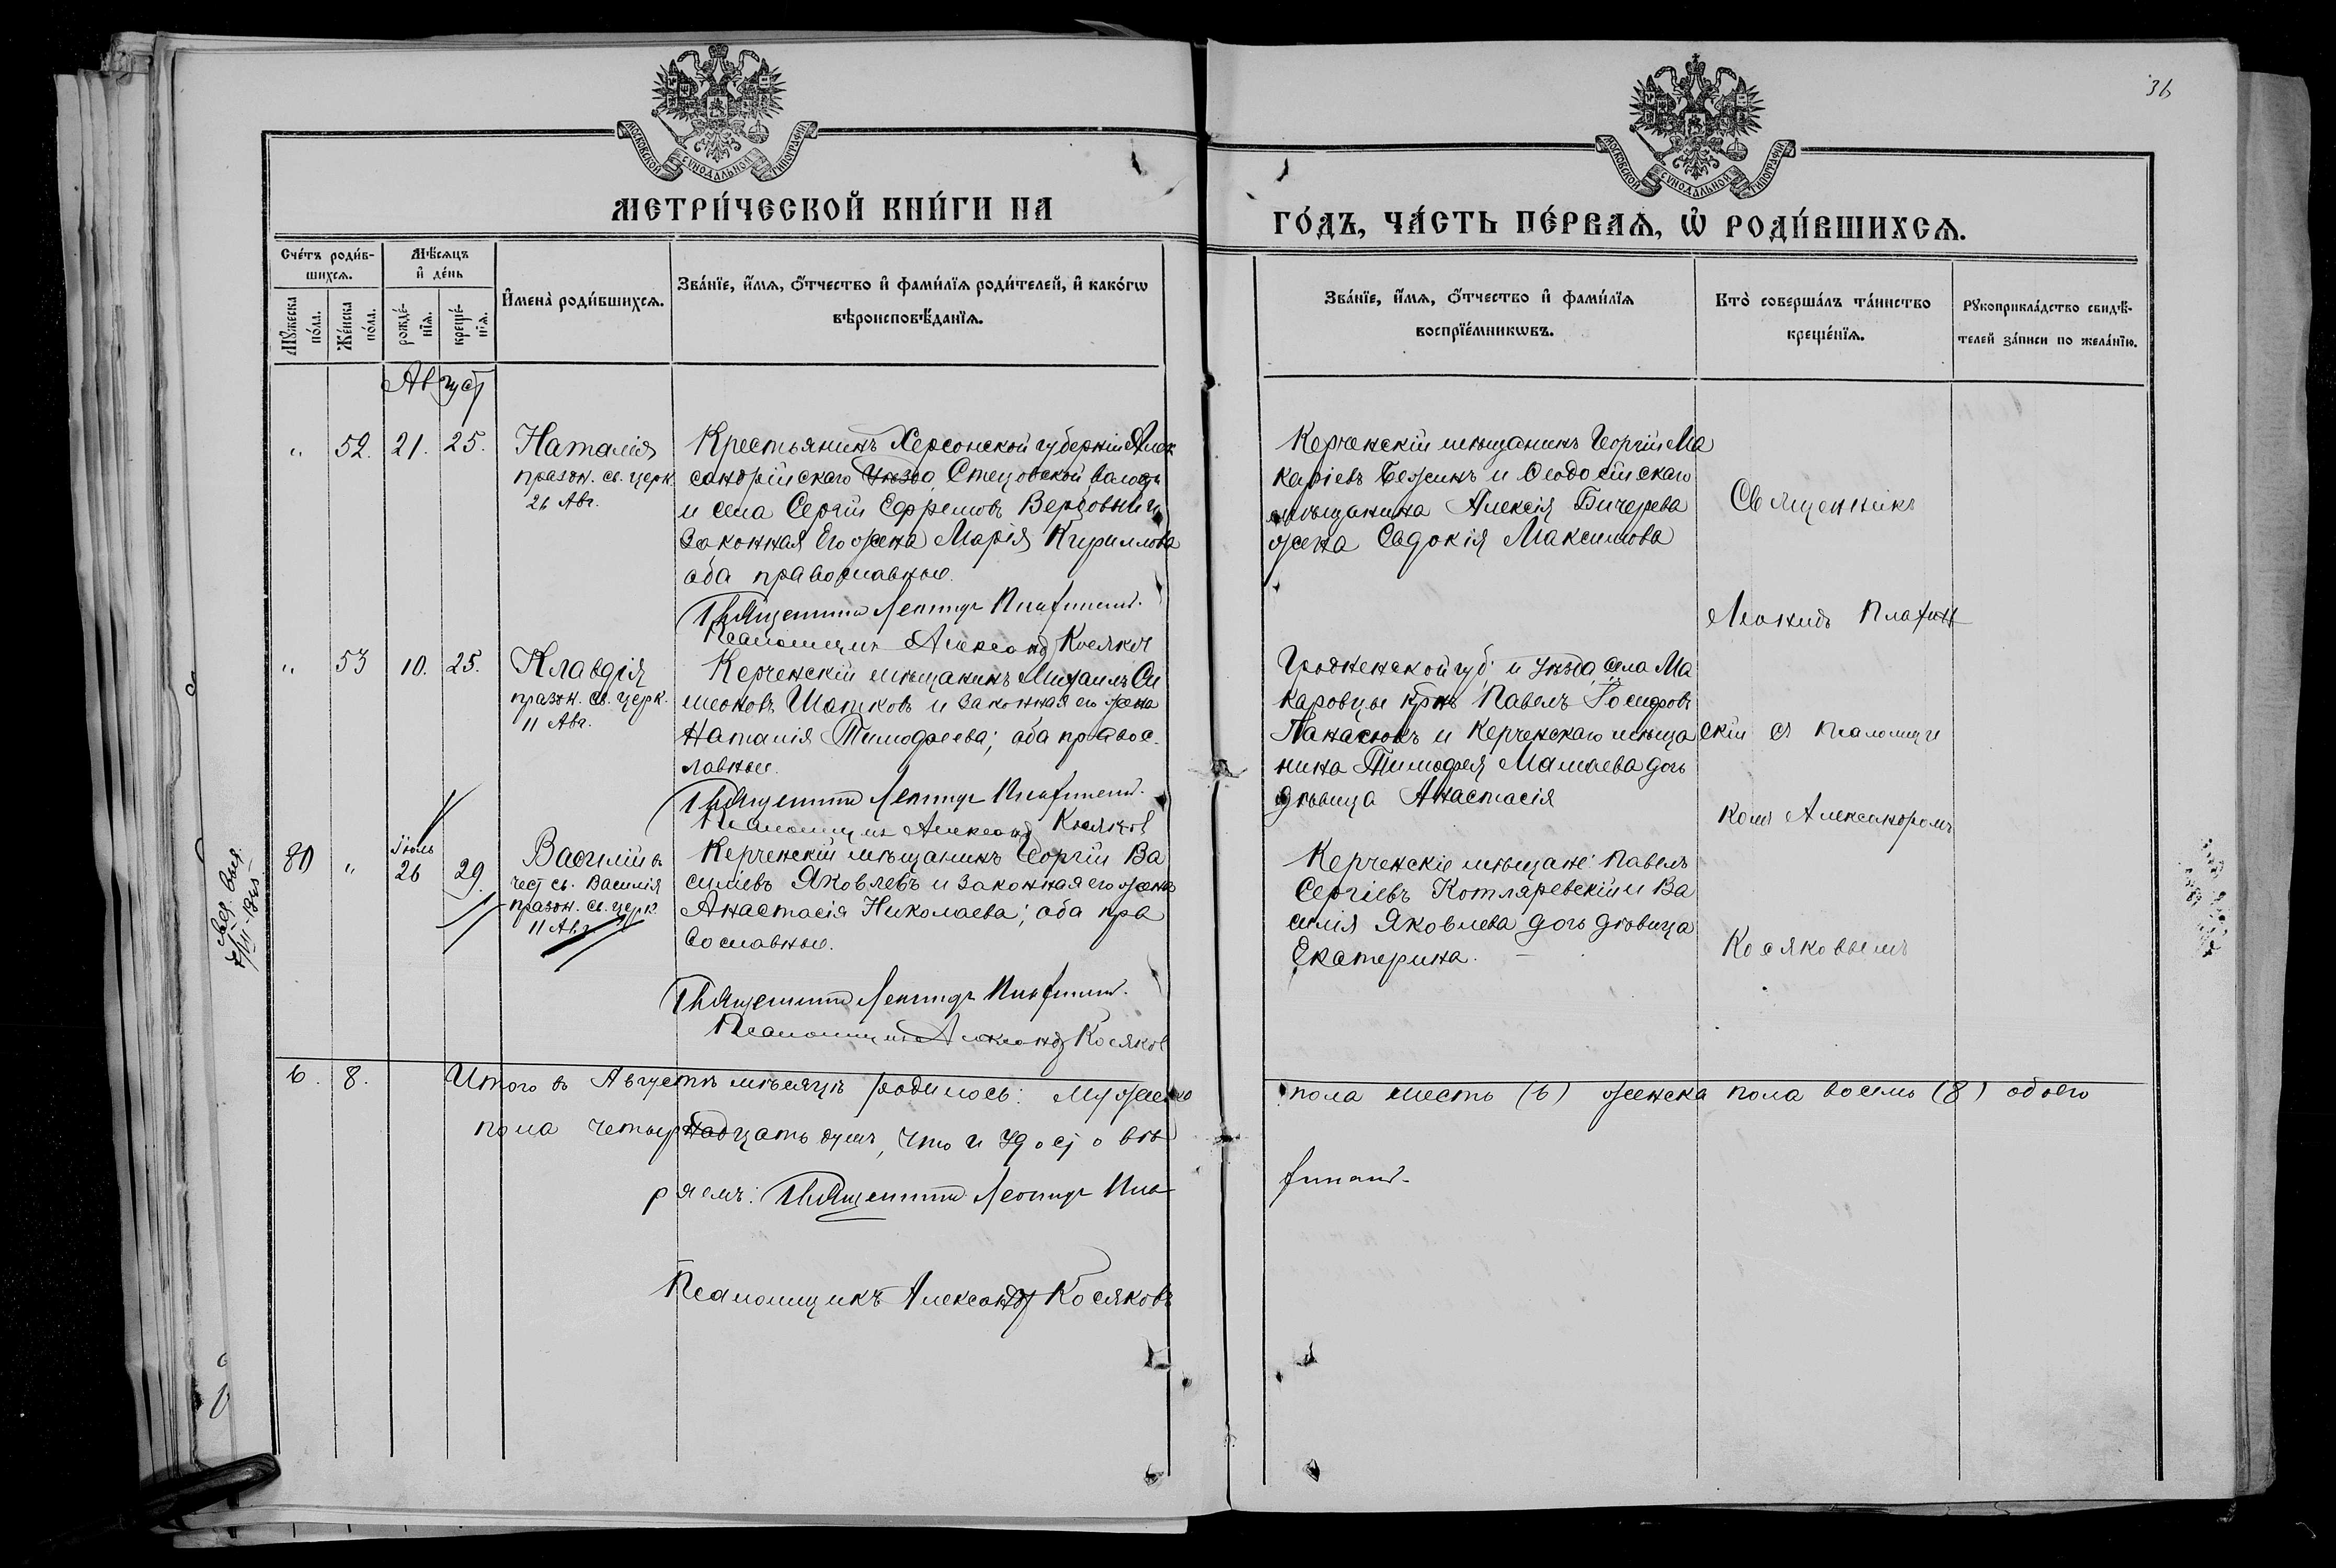 36
МОСКОВСКОЙ СѴНОДАЛЬНОЙ ТИПОГРАФІИ
МОСКОВСКОЙ СѴНОДАЛЬНОЙ ТИПОГРАФІИ
МЕТРИ́ЧЕСКОЙ КНИ́ГИ НА
ГО́ДЪ, ЧА́СТЬ ПЕ́РВАѦ, Ѡ҆ РОДИ́ВШИХСѦ.
Сче́тъ роди́в-
шихсѧ.
Мꙋ́жеска
по́ла.
Же́нска
по́ла.
Мѣ́сѧцъ
и҆ де́нь
рожде́-
нїѧ.
креще́-
нїѧ.
И҆мена̀ роди́вшихсѧ.
Зва́нїе, и҆́мѧ, ѻ҆́тчество и҆ фами́лїѧ роди́телей, и҆ како́гѡ
вѣроисповѣ́данїѧ.
Зва́нїе, и҆́мѧ, ѻ҆́тчество и҆ фами́лїѧ
воспрїе́мникѡвъ.
Кто̀ соверша́лъ та́инство
креще́нїѧ.
Рꙋкоприкла́дство свидѣ́-
телей за́писи по жела́нїю.
Август
" 52. 21. 25.
Наталія
празн. св. церк.
26 Авг.
Крестьянинъ Херсонской губерніи Алек
сандрійскаго Уѣзда, Стецовской волости
и села Сергій Ефремовъ
Законная Его жена Марія Кириллова
оба православные.
Священникъ Леонидъ
Псаломщикъ Александр Косяков
Керченскій мѣщанинъ Георгій Ма
каріевъ Бежинъ и Ѳеодосійскаго
мѣщанина Алексія Бичерева
жена Евдокія Максимова
Священникъ
Леонидъ
" 53 10. 25.
Клавдія
празн. св. церк.
11 Авг.
Керченскій мѣщанинъ Михаилъ Си
меоновъ Шатковъ и законная его жена
Наталія Тимофеева; оба правос-
лавные.
Священникъ Леонидъ
Псаломщикъ Александр Косяков
Гродненской губ. и уѣзда, села Ма
каровцы крнъ Павелъ Іосифовъ
Панасюкъ и Керченскаго мѣща
нина Тимофея Мамаева дочь
дѣвица Анастасія
скій съ псаломщи
комъ Александромъ
80 " Іюль
26 29.
Василій въ
чест св. Василія
празн. св. церк.
11 Авг
Керченскій мѣщанинъ Георгій Ва
силіевъ Яковлевъ и законная его жена
Анастасія Николаева; оба пра
вославные.
Священникъ Леонидъ
Псаломщикъ Александр Косяков
Керченскіе мѣщане: Павелъ
Сергіевъ Котляревскій и Ва
силія Яковлева дочь дѣвица
Екатерина.
Косяковымъ
6. 8. Итого въ Августѣ мѣсяцѣ родилось: мужеска
пола шесть (6) женска пола восемь (8) обоего
пола четырнадцать душъ, что и удостовѣ
ряемъ: Священникъ Леонидъ
Псаломщикъ Александр Косяковъ